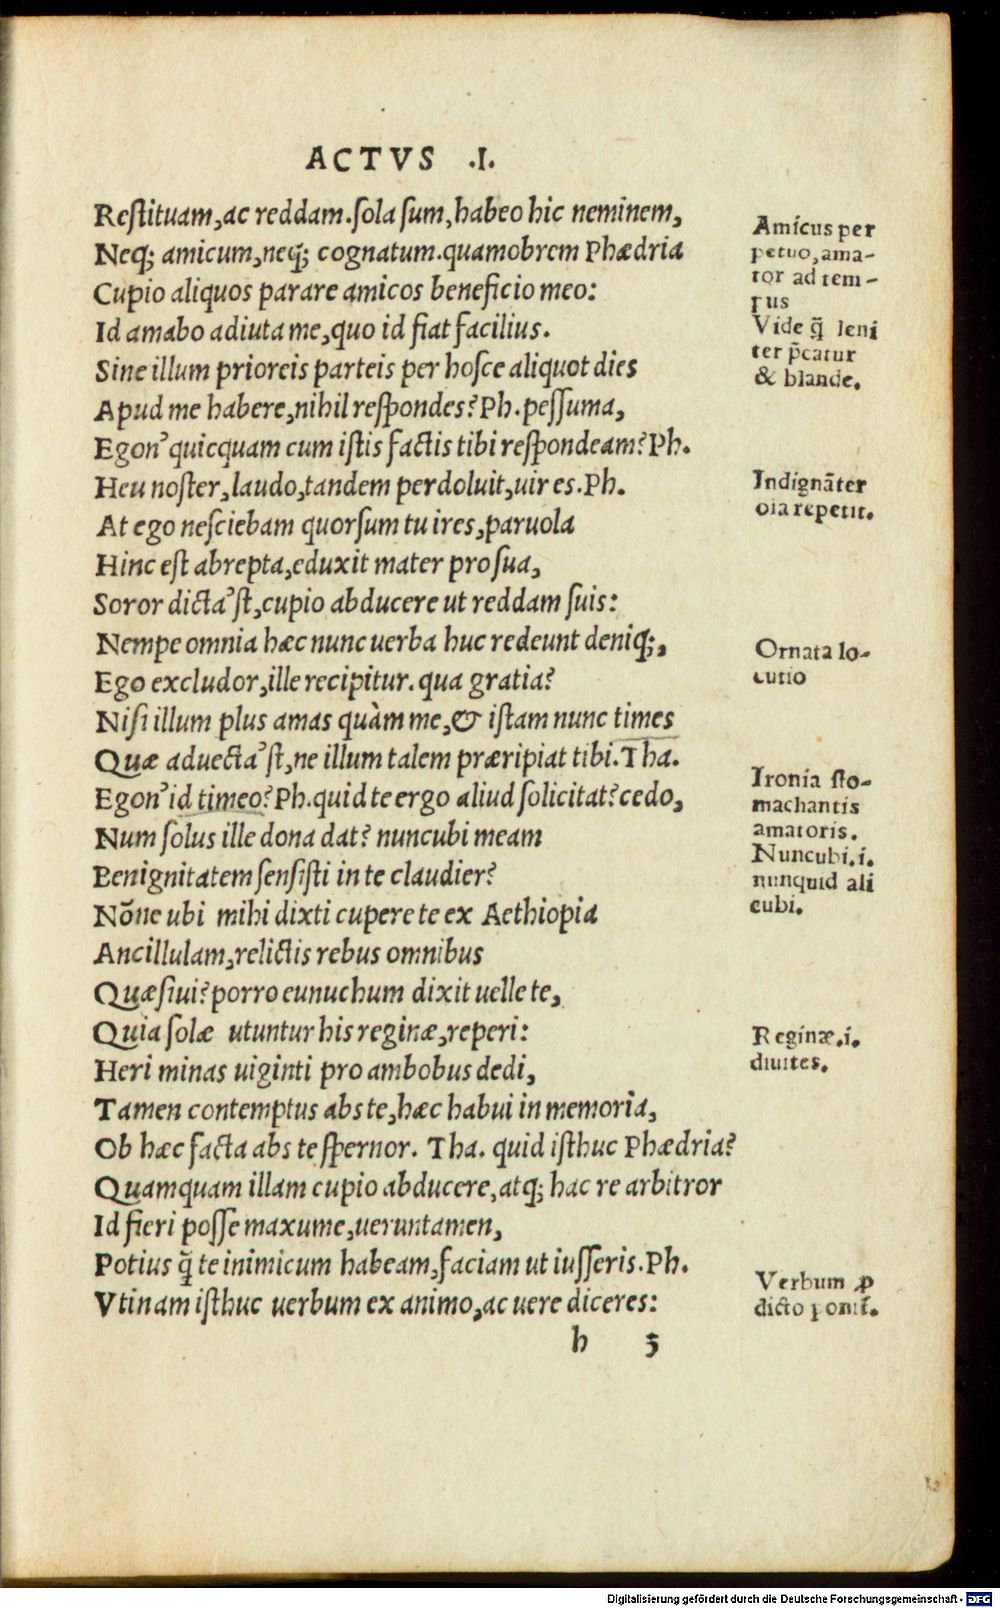 ACTVS .I.
Reſtituam, ac reddam. ſola ſum, habeo hic neminem,
Neq; amicum, neq̃; cognatum. quamobrem Phædria
Cupio aliquos parare amicos beneficio meo:
Id amabo adiuta me, quo id fiat facilius.
Sine illum prioreis parteis per hoſce aliquot dies
Apud me habere, nihil reſpondes? Ph. peſſuma,
Egon' quicquam cum iſtis factis tibi reſpondeam? Ph.
Heu noſter, laudo, tandem perdoluit, uir es. Ph.
At ego neſciebam quorſum tu ires, paruola
Hinc eſt abrepta, eduxit mater pro ſua,
Soror dicta'ſt, cupio abducere ut reddam ſuis:
Nempe omnia hæc nunc uerba huc redeunt deniq;,
Ego excludor, ille recipitur. qua gratia?
Niſi illum plus amas quàm me, & iſtam nunc times
Quæ aduecta'ſt, ne illum talem præripiat tibi. Tha.
Egon' id timeo? Ph. quid te ergo aliud ſolicitat? cedo,
Num ſolus ille dona dat? nuncubi meam
Benignitatem ſenſiſti in te claudier?
Nõne ubi mihi dixti cupere te ex Aethiopia
Ancillulam, relictis rebus omnibus
Quæſiui? porro eunuchum dixit uelle te,
Quia ſolæ utuntur his reginæ, reperi:
Heri minas uiginti pro ambobus dedi,
Tamen contemptus abs te, hæc habui in memoria,
Ob hæc facta abs te ſpernor. Tha. quid iſthuc Phædria?
Quamquam illam cupio abducere, atq; hac re arbitror
Id fieri poſſe maxume, ueruntamen,
Potius q̃ te inimicum habeam, faciam ut iuſſeris. Ph.
Vtinam iſthuc uerbum ex animo, ac uere diceres:
h 3
Amicus per
petuo, ama-
tor ad tem-
pus
Vide q̃ leni
ter p̃catur
& blande.
Indignãter
oĩa repetit.
Ornata lo-
cutio
Ironia ſto-
machantis
amatoris.
Nuncubi. i.
nunquid ali
cubi.
Reginæ. i.
diuites.
Verbum ꝓ
dicto ponit̃.
Digitalisierung gefördert durch die Deutsche Forschungsgemeinschaft - DFG